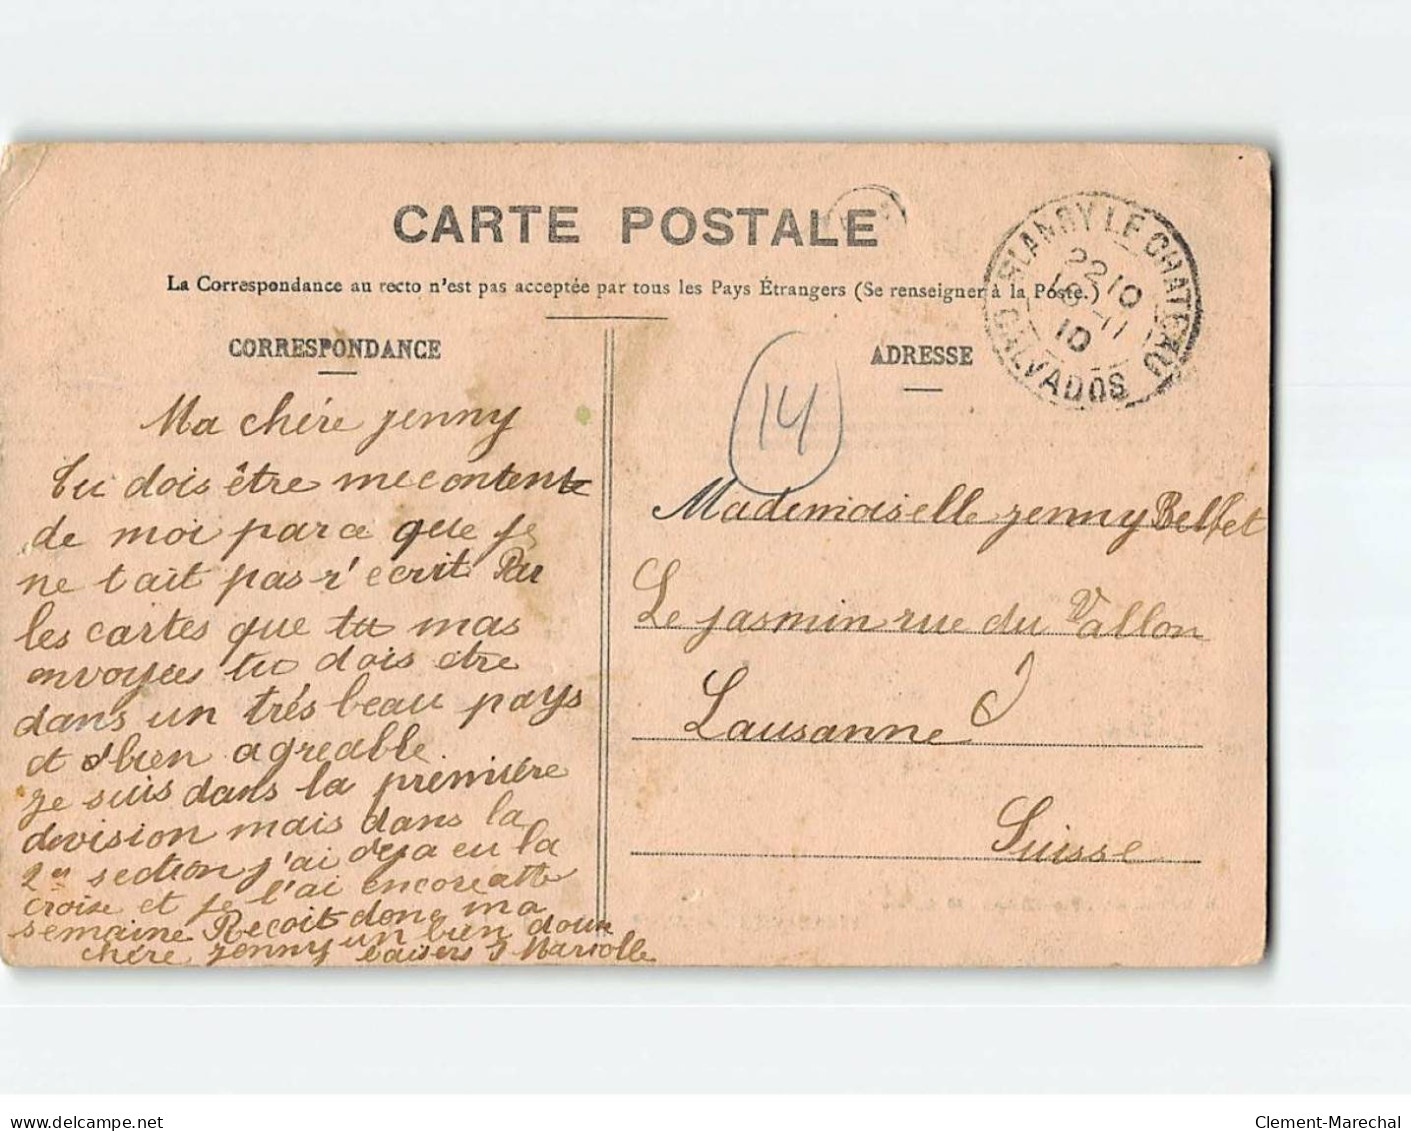 CARTE POSTALE
La Correspondance au recto n'est pas acceptée par tous les Pays Étrangers (Se renseigner à la Poste.)
CORRESPONDANCE
Ma chére jenny
tu dois être mecontente
de moi parce que je
ne t'ait pas r'écrit Par
les cartes que tu mas
envoyées tu dois etre
dans un trés beau pays
et bien agreable
je suis dans la premiére
division mais dans la
2es section j'ai deja eu la
croise et je l'ai encore cette
semaine Recoit donc ma
chére jenny un bien doux
baisers
ADRESSE
14
Mademoiselle jenny
Le jasmin rue du Vallon
Lausanne
Suisse
BLANGY LE CHATEAU
22 10
10
CALVADOS
Clement-Marechal
www.delcampe.net